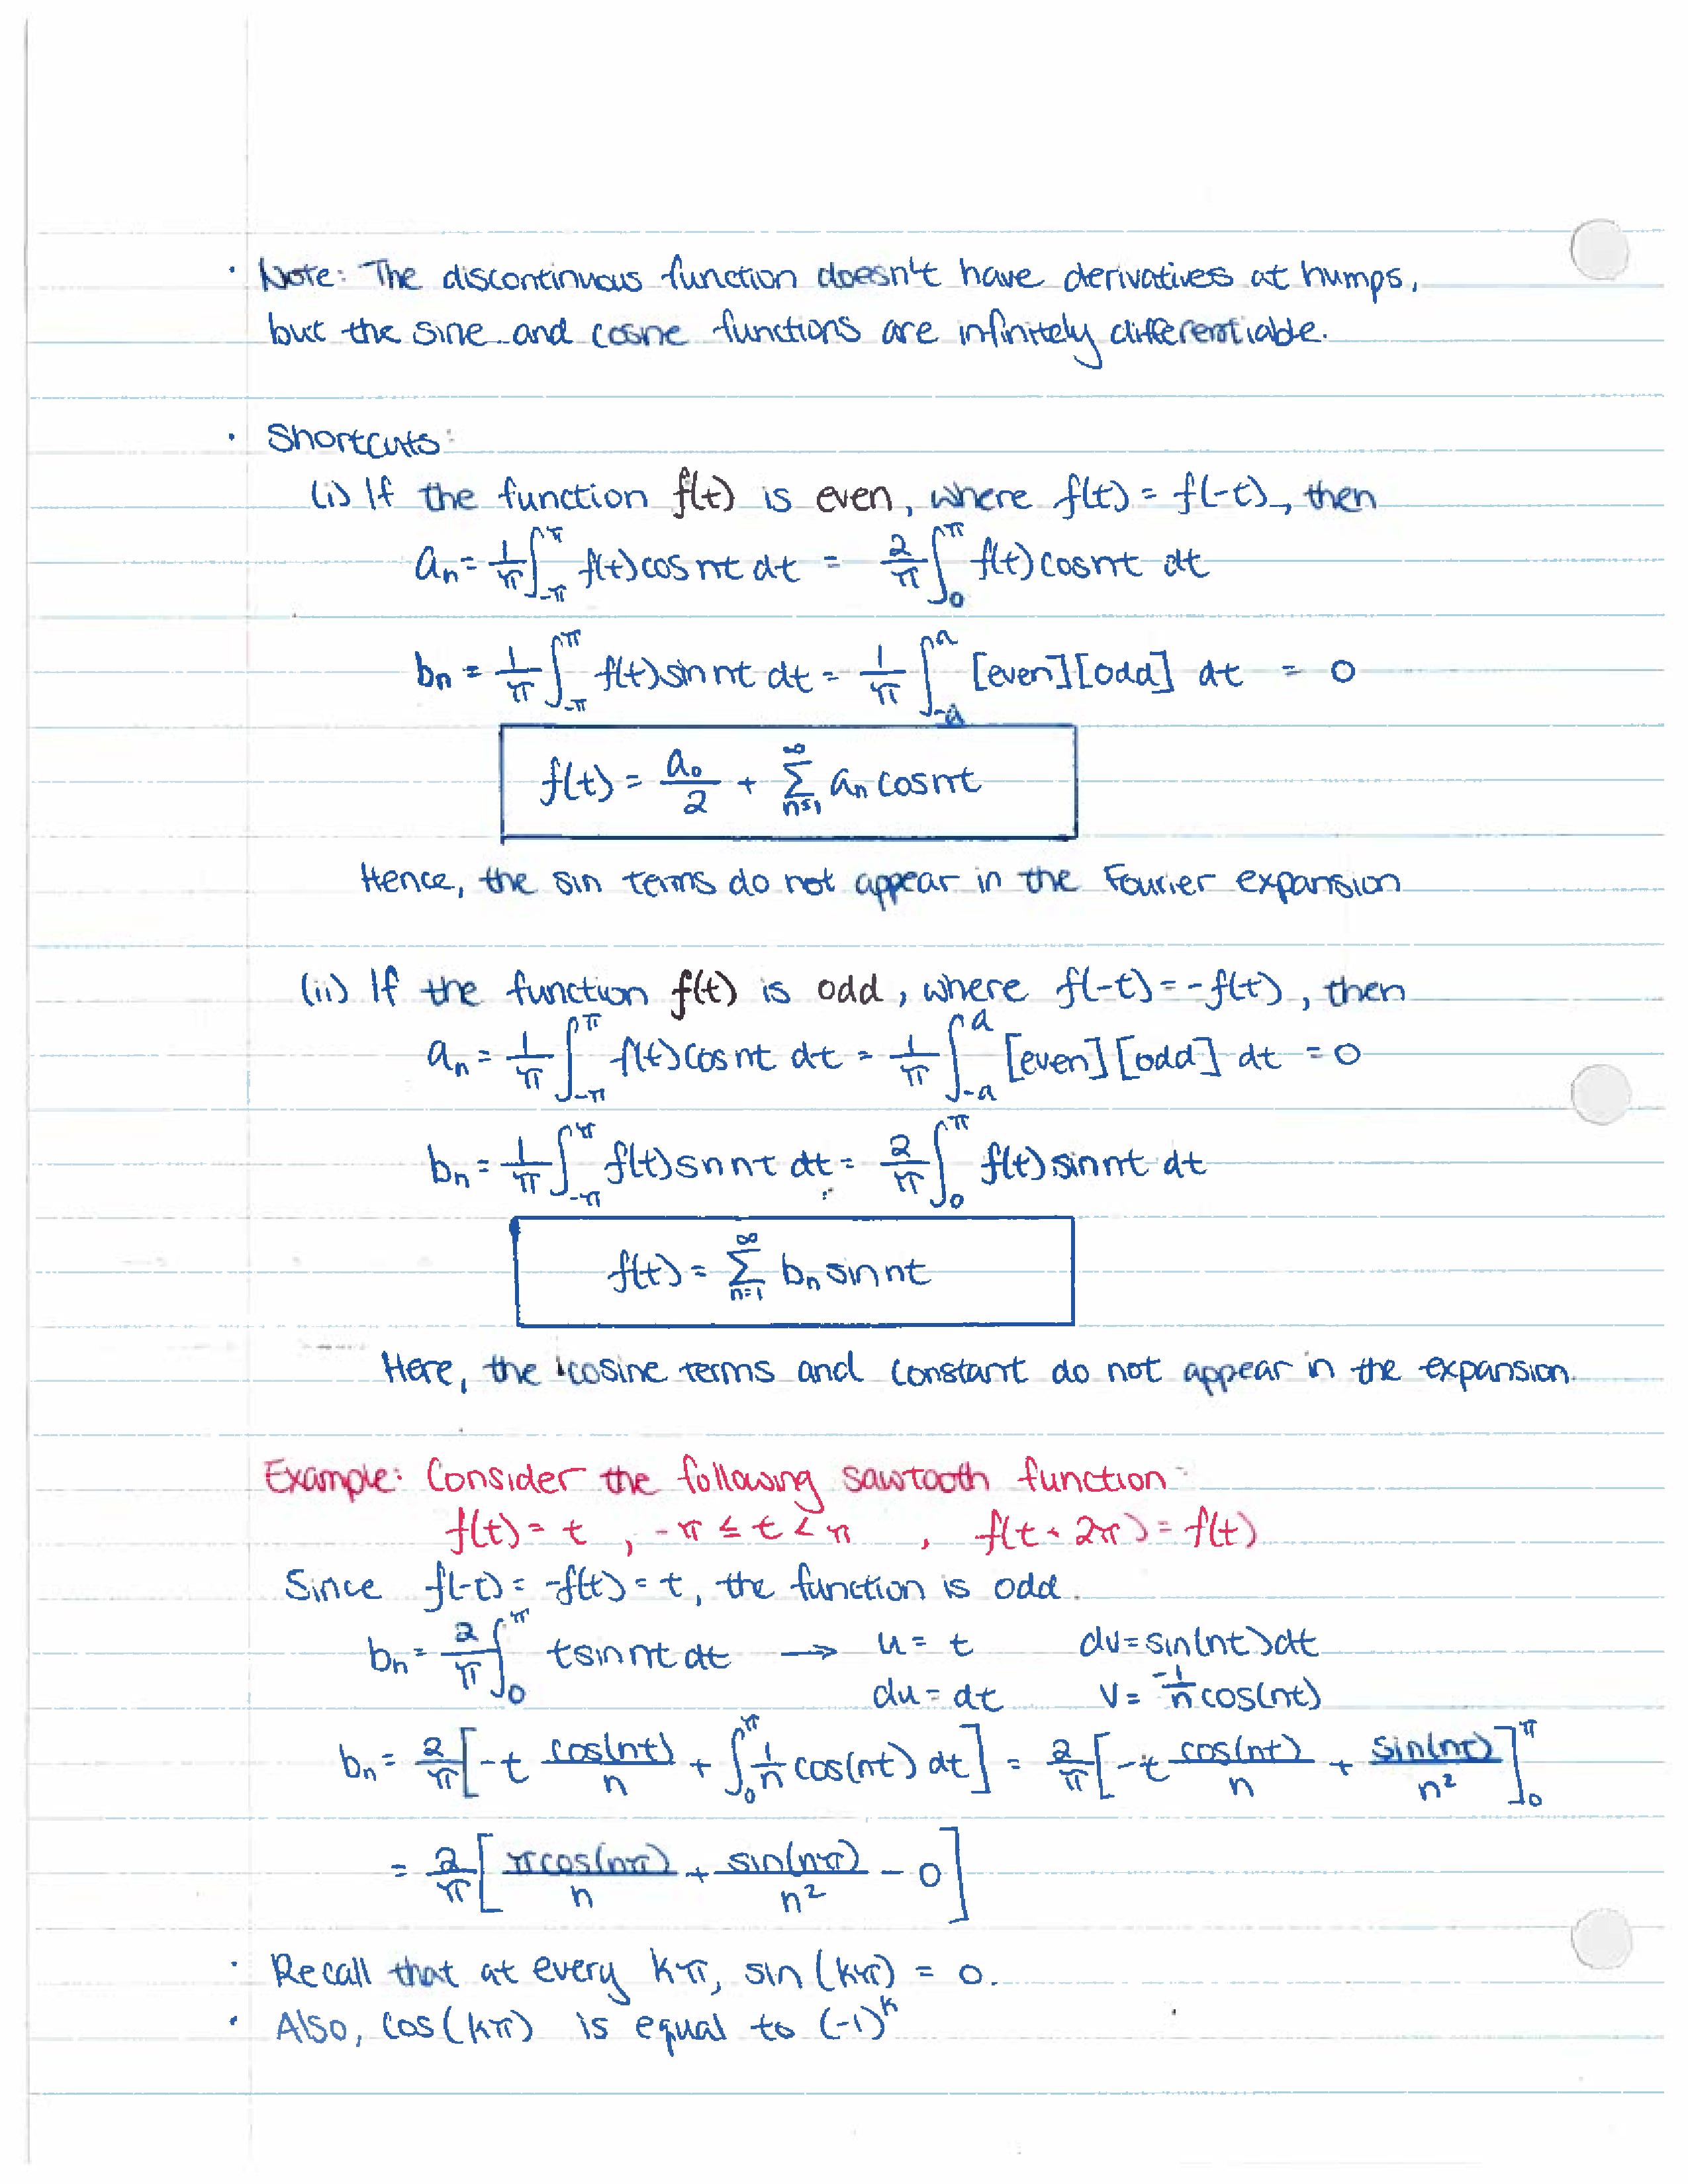 · Note: The discontinuous function doesn't have derivatives at humps,
but the sine and cosine functions are infinitely differentiable.
· Shortcuts:
(i) If the function f(t) is even, where f(t) = f(-t), then
aₙ = 1/π ∫_{-π}^{π} f(t) cos nt dt = 2/π ∫_0^π f(t) cos nt dt
bₙ = 1/π ∫_{-π}^{π} f(t) sin nt dt = 1/π ∫_{-a}^{a} [even][odd] dt = 0
f(t) = a₀/2 + Σ_{n=1}^{∞} aₙ cos nt
Hence, the sin terms do not appear in the Fourier expansion
(ii) If the function f(t) is odd, where f(-t) = -f(t), then
aₙ = 1/π ∫_{-π}^{π} f(t) cos nt dt = 1/π ∫_{-a}^{a} [even][odd] dt = 0
bₙ = 1/π ∫_{-π}^{π} f(t) sin nt dt = 2/π ∫_0^π f(t) sin nt dt
f(t) = Σ_{n=1}^{∞} bₙ sin nt
Here, the cosine terms and constant do not appear in the expansion.
Example: Consider the following sawtooth function:
f(t) = t , -π ≤ t < π , f(t + 2π) = f(t)
Since f(-t) = -f(t) = t, the function is odd.
bₙ = 2/π ∫_0^π t sin nt dt → u = t dv = sin(nt) dt
du = dt v = -1/n cos(nt)
bₙ = 2/π [-t cos(nt)/n + ∫_0^π 1/n cos(nt) dt] = 2/π [-t cos(nt)/n + sin(nt)/n²]_0^π
= 2/π [π cos(nπ)/n + sin(nπ)/n² - 0]
· Recall that at every kπ, sin(kπ) = 0.
· Also, cos(kπ) is equal to (-1)^k